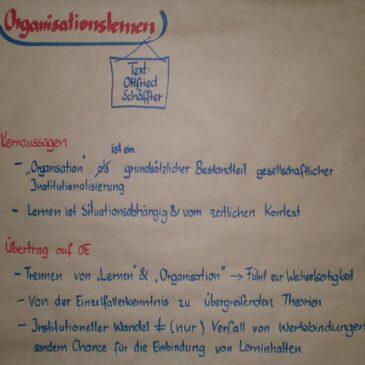 Organisationslernen
Text:
Ottfried
Schäffter
Kernaussagen
ist ein
- „Organisation" als grundsätzlicher Bestandteil gesellschaftlicher
Institutionalisierung
- Lernen ist Situationsabhängig & vom zeitlichen Kontext
Übertrag auf OE
- Trennen von „Lernen" & „Organisation" → Führt zur Wechselseitigkeit
- Von der Einzelfallerkenntnis zu übergreifenden Theorien
- Institutioneller Wandel ≠ (nur) Verfall von Wertebindungen
sondern Chance für die Einbindung von Lerninhalten